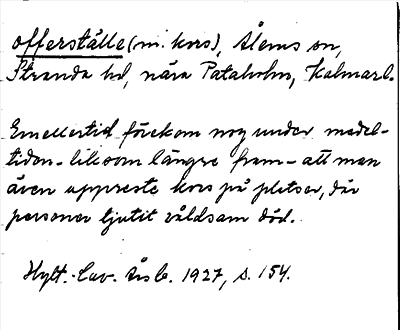 offerställe (m. kors), Ålems sn,
Stranda hd, nära Pataholm, Kalmarl.
Emellertid förekom nog under medel-
tiden - liksom längre fram - att man
även uppreste kors på platser, där
personer ljutit våldsam död.
Hylt.-Cav. Årsb. 1927, s. 154.